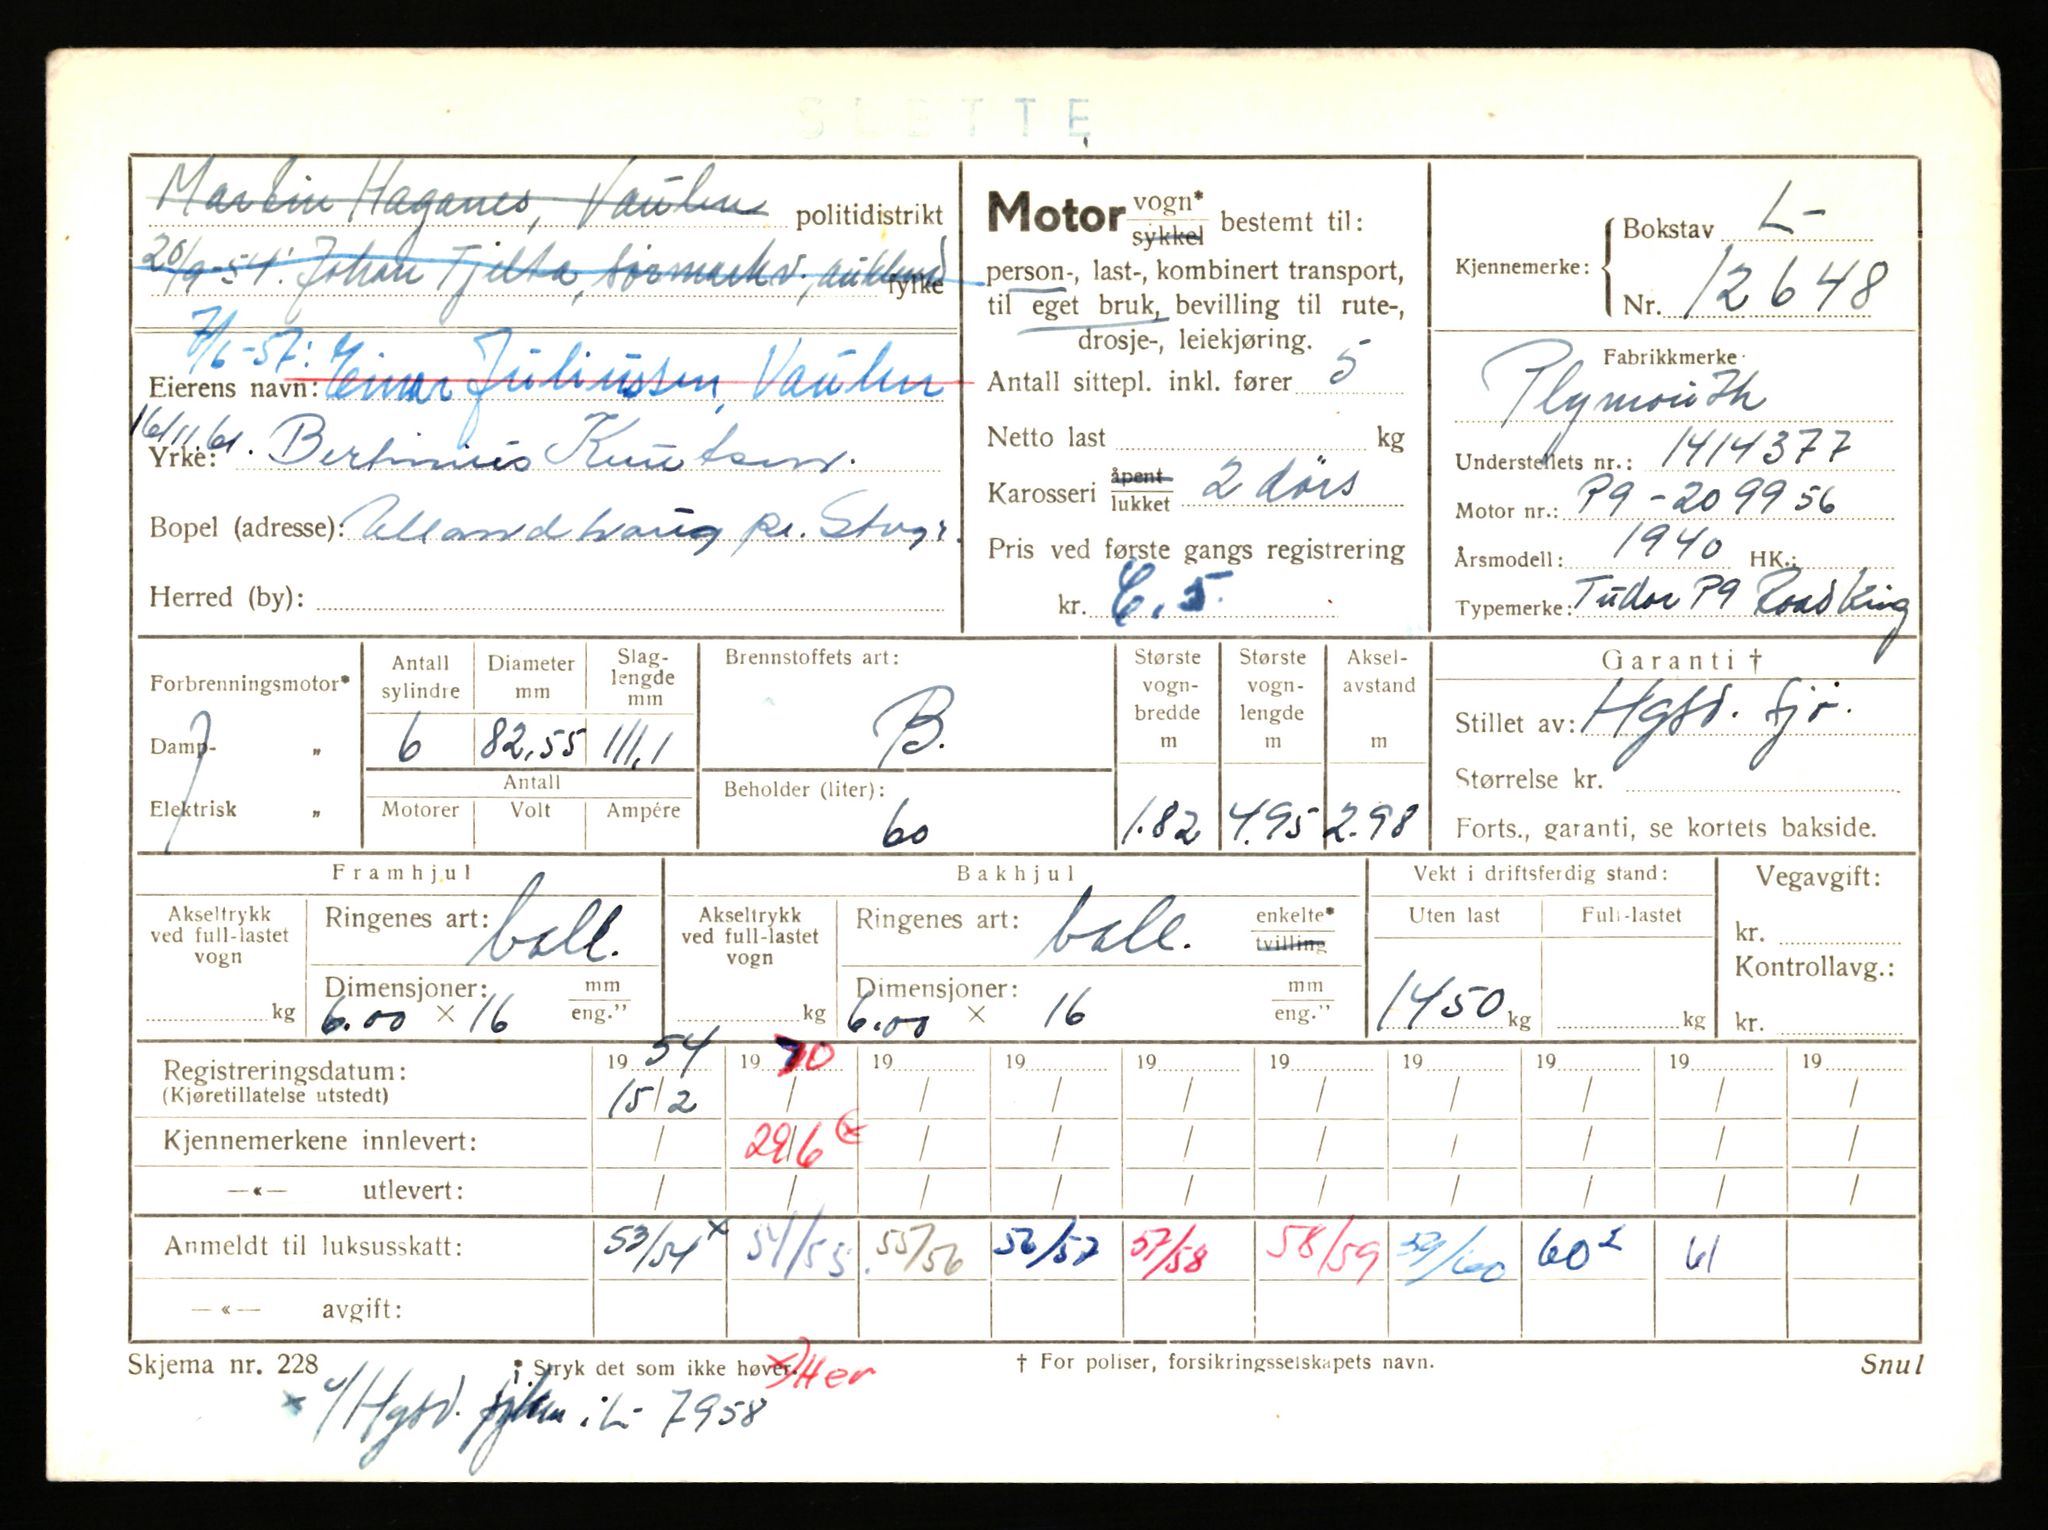 SLETTE
Martin Haganes, Vaulen politidistrikt
20/9-54: Johan Tjelta, sørmarkv., aukland fylke
7/6-57:
Eierens navn: Einar Juliussen, Vaulen
16/11.61. Bertinius Knutsen.
Yrke:
Bopel (adresse): Ullandhaug pr. Stvgr.
Herred (by):
Motor vogn* sykkel bestemt til:
person-, last-, kombinert transport,
til eget bruk, bevilling til rute-,
drosje-, leiekjøring.
Antall sittepl. inkl. fører 5
Netto last kg
Karosseri åpent lukket 2 dørs
Pris ved første gangs registrering
kr. C. 5.
Kjennemerke: Bokstav L-
Nr. 12648
Fabrikkmerke
Plymouth
Understellets nr.: 1414377
Motor nr.: P9-209956
Årsmodell: 1940 HK.:
Typemerke: Tudor P9 Road King
Forbrenningsmotor*
Damp- „
Elektrisk „
Antall sylindre 6
Diameter mm 82,55
Slaglengde mm 111,1
Antall
Motorer Volt Ampére
Brennstoffets art:
B.
Beholder (liter):
60
Største vognbredde m 1.82
Største vognlengde m 4.95
Akselavstand m 2.98
Garanti †
Stillet av: Hgsd. sjø.
Størrelse kr.
Forts., garanti, se kortets bakside.
Framhjul
Akseltrykk ved full-lastet vogn kg
Ringenes art: ball.
Dimensjoner: mm eng."
6.00 × 16
Bakhjul
Akseltrykk ved full-lastet vogn kg
Ringenes art: ball. enkelte* tvilling
Dimensjoner: mm eng."
6.00 × 16
Vekt i driftsferdig stand:
Uten last Full-lastet
1450 kg kg
Vegavgift:
kr.
Kontrollavg.:
kr.
Registreringsdatum: 19 54 19 70 19 19 19 19 19 19 19 19
(Kjøretillatelse utstedt) 15/2 / / / / / / / / /
Kjennemerkene innlevert: / 29/6 (x / / / / / / / /
—«— utlevert: / / / / / / / / / /
Anmeldt til luksusskatt: 53/54 x 54/55 55/56 56/57 57/58 58/59 59/60 60 61
—«— avgift:
Skjema nr. 228 * Stryk det som ikke høver. x) Her † For poliser, forsikringsselskapets navn. Snul
x Hgsd. : L- 7958